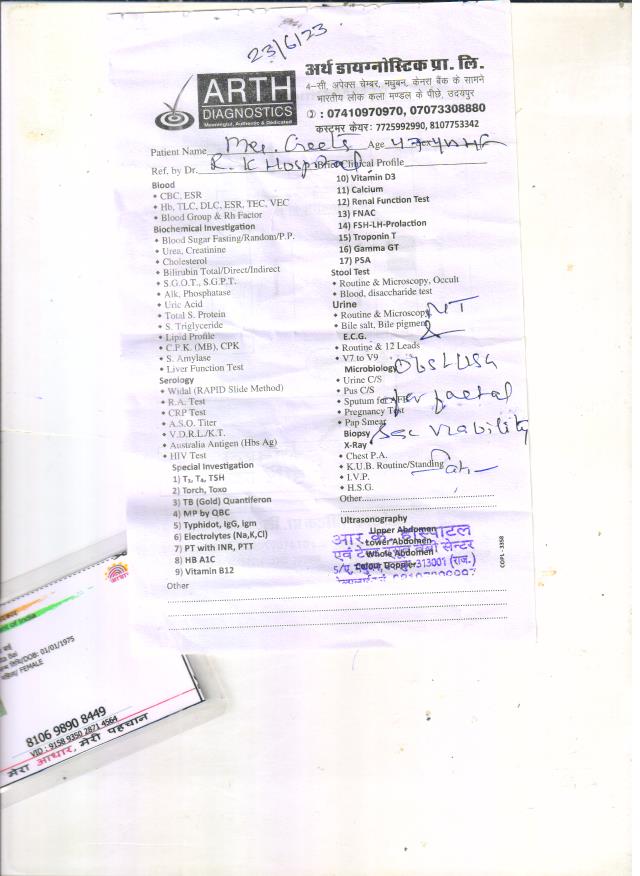 23/6/23.
ARTH
DIAGNOSTICS
Meaningful, Authentic & Dedicated
अर्थ डायग्नोस्टिक प्रा. लि.
4-सी, अपेक्स चेम्बर, मधुबन, केनरा बैंक के सामने
भारतीय लोक कला मण्डल के पीछे, उदयपुर
: 07410970970, 07073308880
कस्टमर केयर: 7725992990, 8107753342
Patient Name Age
Ref. by Dr. R. K Hospital Clinical Profile
Blood
• CBC, ESR
• Hb, TLC, DLC, ESR, TEC, VEC
• Blood Group & Rh Factor
Biochemical Investigation
• Blood Sugar Fasting/Random/P.P.
• Urea, Creatinine
• Cholesterol
• Bilirubin Total/Direct/Indirect
• S.G.O.T., S.G.P.T.
• Alk, Phosphatase
• Uric Acid
• Total S. Protein
• S. Triglyceride
• Lipid Profile
• C.P.K. (MB), CPK
• S. Amylase
• Liver Function Test
Serology
• Widal (RAPID Slide Method)
• R.A. Test
• CRP Test
• A.S.O. Titer
• V.D.R.L./K.T.
• Australia Antigen (Hbs Ag)
• HIV Test
Special Investigation
1) T₃, T₄, TSH
2) Torch, Toxo
3) TB (Gold) Quantiferon
4) MP by QBC
5) Typhidot, IgG, Igm
6) Electrolytes (Na,K,Cl)
7) PT with INR, PTT
8) HB A1C
9) Vitamin B12
Other
10) Vitamin D3
11) Calcium
12) Renal Function Test
13) FNAC
14) FSH-LH-Prolaction
15) Troponin T
16) Gamma GT
17) PSA
Stool Test
• Routine & Microscopy, Occult
• Blood, disaccharide test
Urine
• Routine & Microscopy NT
• Bile salt, Bile pigment &
E.C.G.
• Routine & 12 Leads
• V7 to V9
Microbiology Obs USG
• Urine C/S
• Pus C/S
• Sputum for AFB for faetal
• Pregnancy Test
• Pap Smear
Biopsy viability
X-Ray
• Chest P.A.
• K.U.B. Routine/Standing
• I.V.P.
• H.S.G.
Other
Ultrasonography
Upper Abdomen
Lower Abdomen
Whole Abdomen
Colour Doppler
आर. के. हॉस्पीटल
313001 (राज.)
COPL -3358
of India
DOB: 01/01/1975
FEMALE
8106 9890 8449
VID : 9158 9350 2871 4564
मेरा आधार, मेरी पहचान